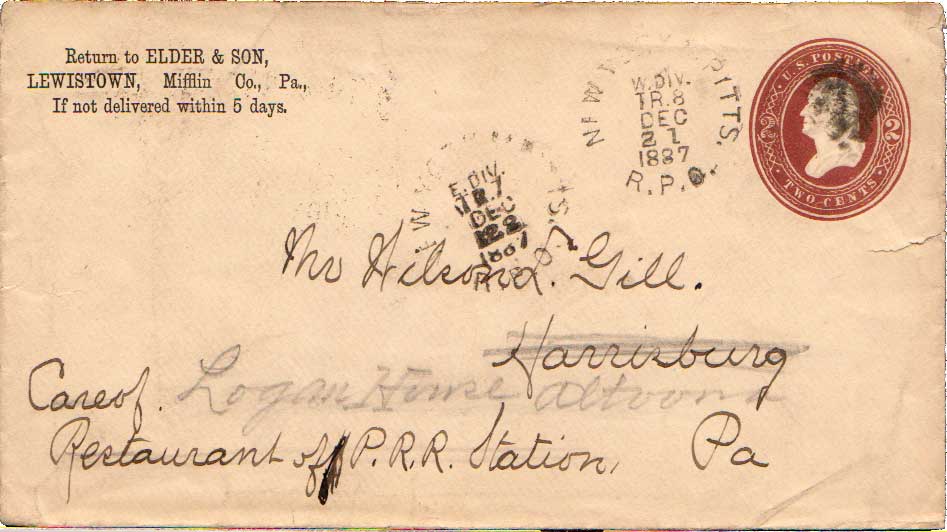 Return to ELDER & SON,
LEWISTOWN, Mifflin Co., Pa.,
If not delivered within 5 days.
PITTS.
W. DIV.
TR. 8
DEC
21
1887
R.P.O.
U.S. POSTAGE
2 2
TWO CENTS
E. DIV.
DEC
1887
Mr Wilson L. Gill.
Harrisburg
Care of. Logan House Altoona
Restaurant of P.R.R. Station, Pa